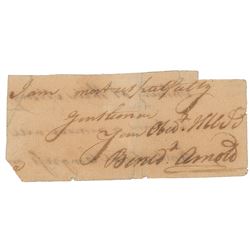 I am most respectfully
Gentlemen
Your Obedt. Hble St
Bened.t Arnold